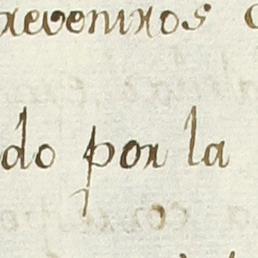 preveniros
do por la